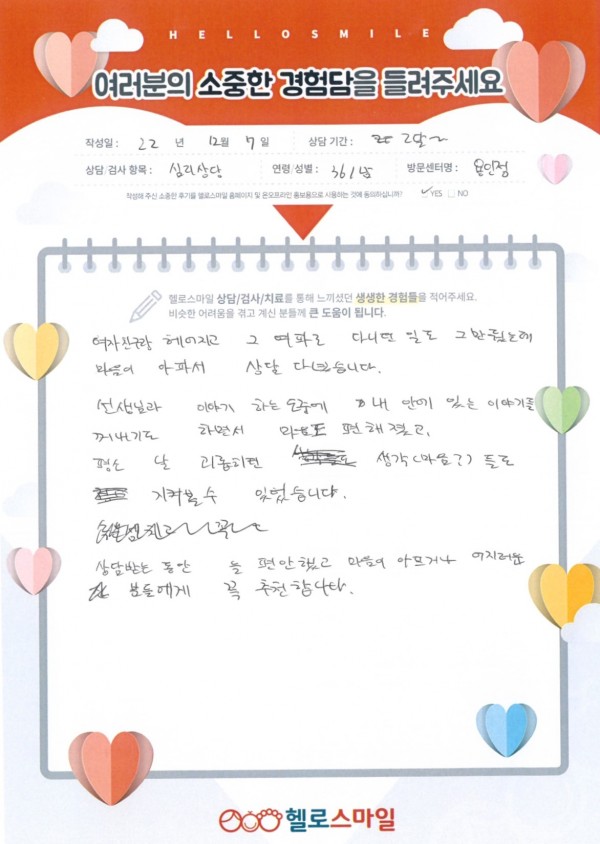 HELLOSMILE
여러분의 소중한 경험담을 들려주세요
작성일 : 22 년 12월 7일 상담 기간 : 2달~
상담/검사 항목 : 심리상담 연령/성별 : 36/남 방문센터명 : 용인점
작성해 주신 소중한 후기를 헬로스마일 홈페이지 및 온오프라인 홍보용으로 사용하는 것에 동의하십니까? ✓ YES □ NO
헬로스마일 상담/검사/치료를 통해 느끼셨던 생생한 경험들을 적어주세요.
비슷한 어려움을 겪고 계신 분들께 큰 도움이 됩니다.
여자친구랑 헤어지고 그 여파로 다니던 일도 그만뒀는데
마음이 아파서 상담 다녔습니다.
선생님과 이야기 하는 도중에 내 안에 있는 이야기를
꺼내기도 하면서 마음도 편해졌고,
평소 날 괴롭히던 생각(마음?)들로
지켜볼 수 있었습니다.
상담받는 동안 늘 편안했고 마음이 아프거나 어지러운
분들에게 꼭 추천합니다.
헬로스마일